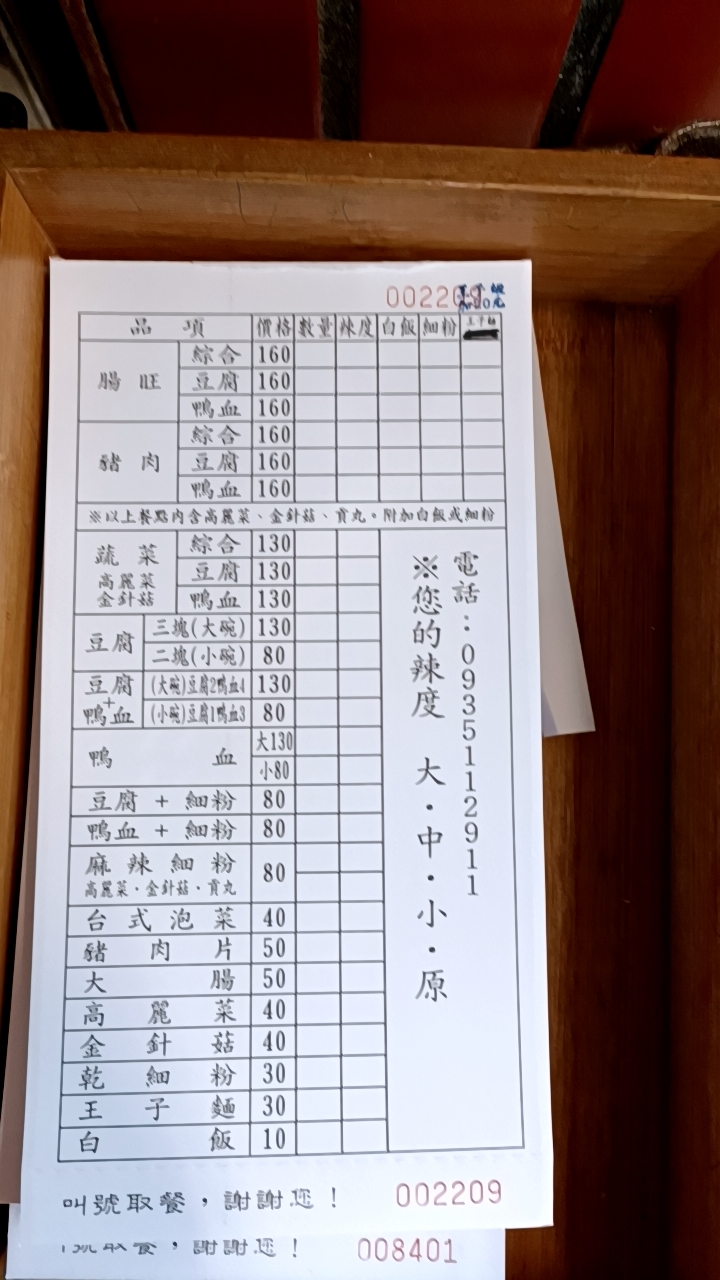 002209
品項 價格 數量 辣度 白飯 細粉 王子麵
腸旺 綜合 160
豆腐 160
鴨血 160
豬肉 綜合 160
豆腐 160
鴨血 160
※以上餐點內含高麗菜、金針菇、貢丸。附加白飯或細粉
蔬菜 高麗菜 金針菇 綜合 130
豆腐 130
鴨血 130
豆腐 三塊(大碗) 130
二塊(小碗) 80
豆腐+鴨血 (大碗)豆腐2鴨血4 130
(小碗)豆腐1鴨血3 80
鴨血 大130
小80
豆腐+細粉 80
鴨血+細粉 80
麻辣細粉 80
高麗菜·金針菇·貢丸
台式泡菜 40
豬肉片 50
大腸 50
高麗菜 40
金針菇 40
乾細粉 30
王子麵 30
白飯 10
電話:0935112911
※您的辣度 大·中·小·原
叫號取餐,謝謝您! 002209
號取餐,謝謝您! 008401